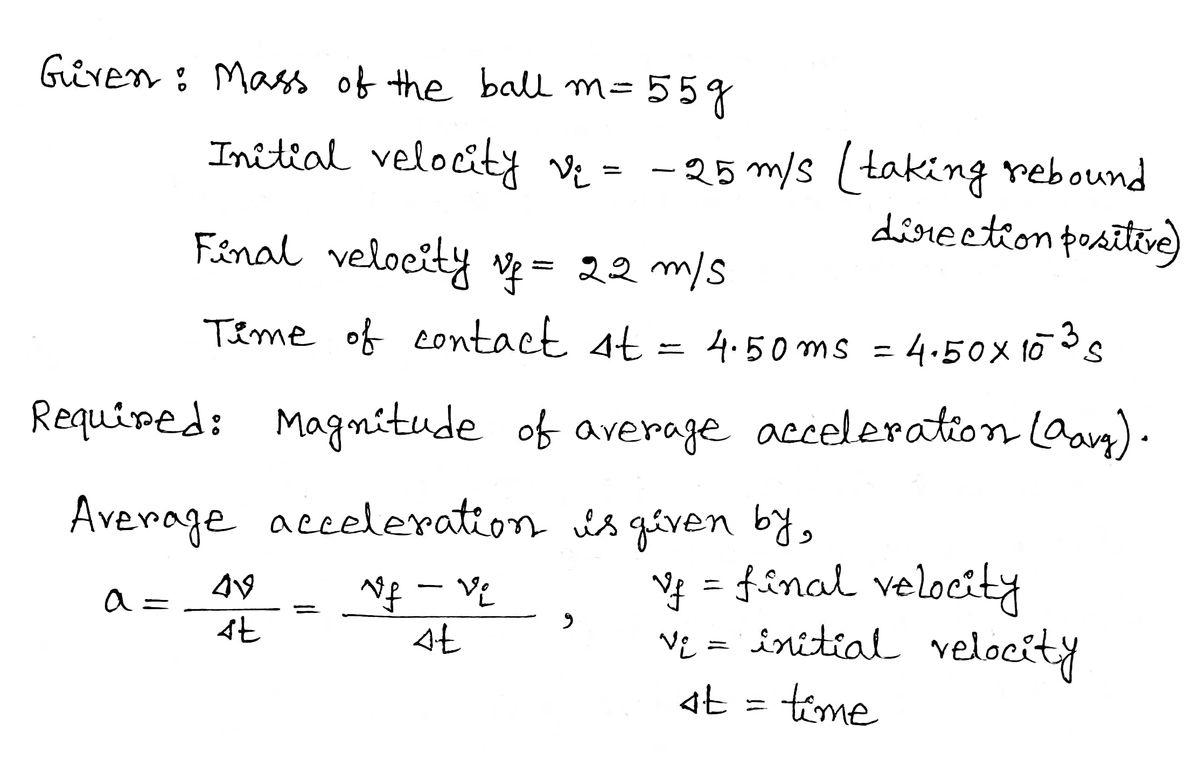 Given : Mass of the ball m = 55g
Initial velocity vᵢ = - 25 m/s (taking rebound
direction positive)
Final velocity v_f = 22 m/s
Time of contact Δt = 4.50 ms = 4.50 x 10⁻³ s
Required: Magnitude of average acceleration (a_avg).
Average acceleration is given by,
a = Δv/Δt = (v_f - vᵢ)/Δt , v_f = final velocity
vᵢ = initial velocity
Δt = time